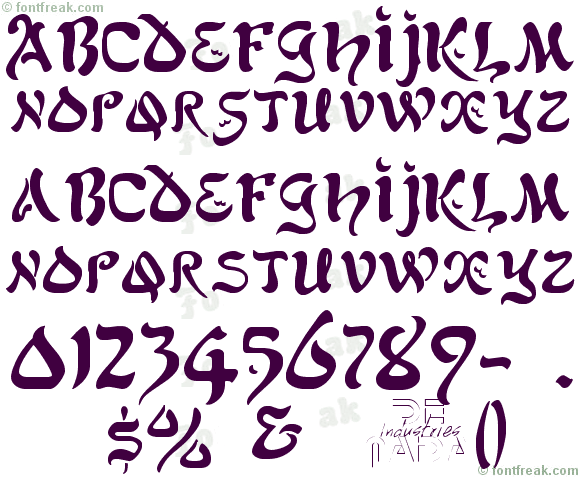 © fontfreak.com
ABCDEFGHIJKLM
NOPQRSTUVWXYZ
ABCDEFGHIJKLM
NOPQRSTUVWXYZ
0123456789-.
$%& Industries ()
© fontfreak.com